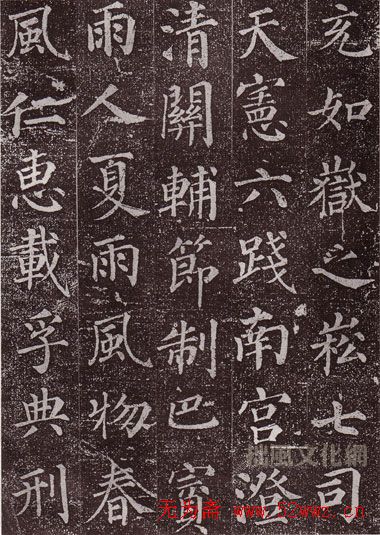 充如嶽之崧七司
天憲六踐南宮澄
清關輔節制巴賨
雨人夏雨風物春
風仁惠載孚典刑
風文化網
无为斋 www.52wwz.cn